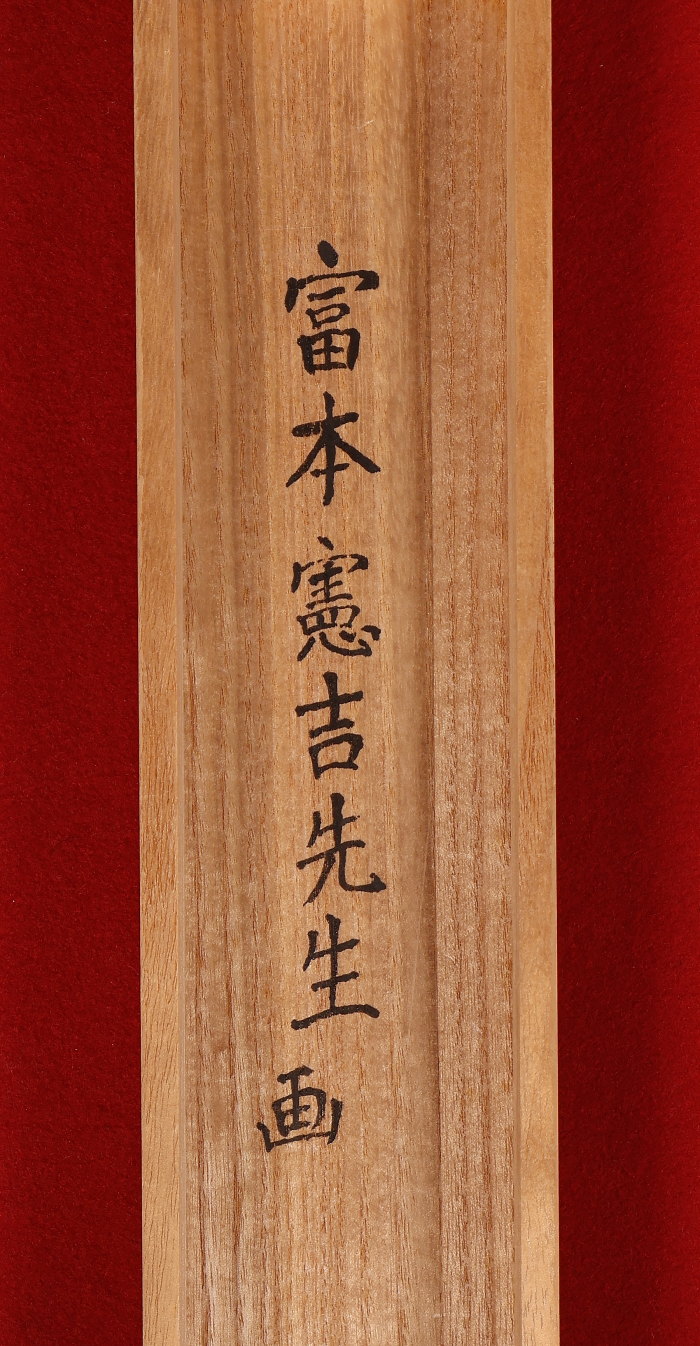 富本憲吉先生画